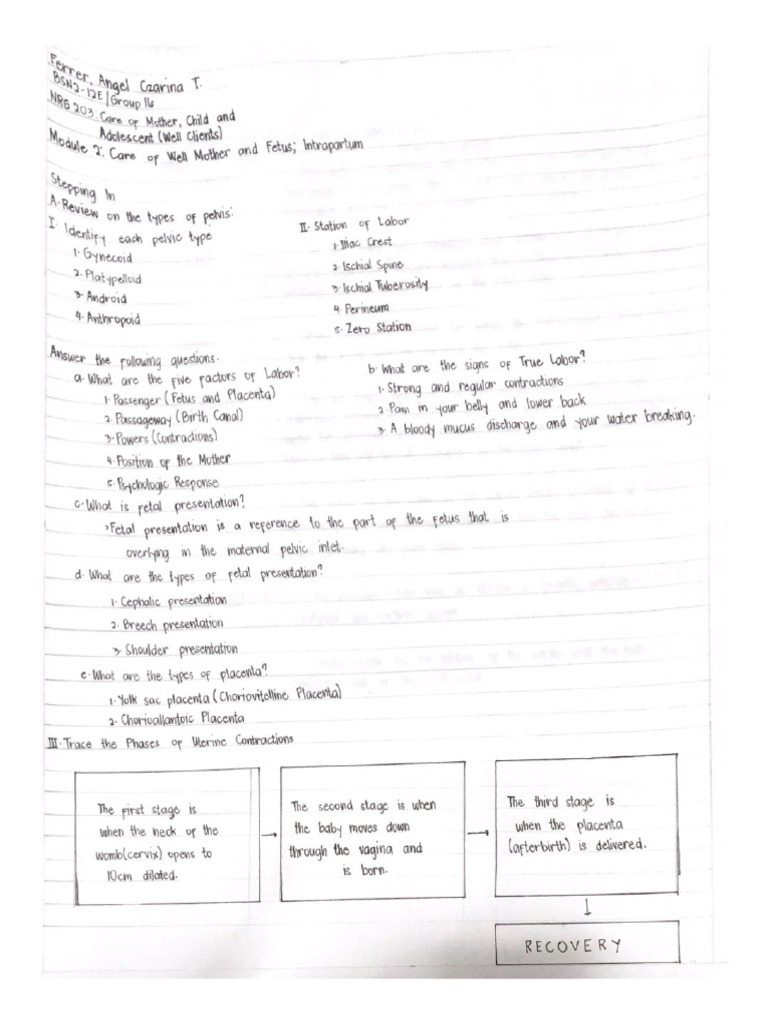 Ferrer, Angel Czarina T.
BSN2-12E/Group 16
NRG 203: Care of Mother, Child and
Adolescent (Well Clients)
Module 2: Care of Well Mother and Fetus; Intrapartum
Stepping In
A. Review on the types of pelvis:
I. Identify each pelvic type
1. Gynecoid
2. Platypelloid
3. Android
4. Anthropoid
II. Station of Labor
1. Iliac Crest
2. Ischial Spine
3. Ischial Tuberosity
4. Perineum
5. Zero Station
Answer the following questions.
a. What are the five factors of Labor?
1. Passenger (Fetus and Placenta)
2. Passageway (Birth Canal)
3. Powers (Contractions)
4. Position of the Mother
5. Psychologic Response
b. What are the signs of True Labor?
1. Strong and regular contractions
2. Pain in your belly and lower back
3. A bloody mucus discharge and your water breaking.
c. What is fetal presentation?
Fetal presentation is a reference to the part of the fetus that is
overlying in the maternal pelvic inlet.
d. What are the types of fetal presentation?
1. Cephalic presentation
2. Breech presentation
3. Shoulder presentation
e. What are the types of placenta?
1. Yolk sac placenta (Choriovitelline Placenta)
2. Chorioallantoic Placenta
III. Trace the Phases of Uterine Contractions
The first stage is
when the neck of the
womb(cervix) opens to
10cm dilated.
The second stage is when
the baby moves down
through the vagina and
is born.
The third stage is
when the placenta
(afterbirth) is delivered.
RECOVERY